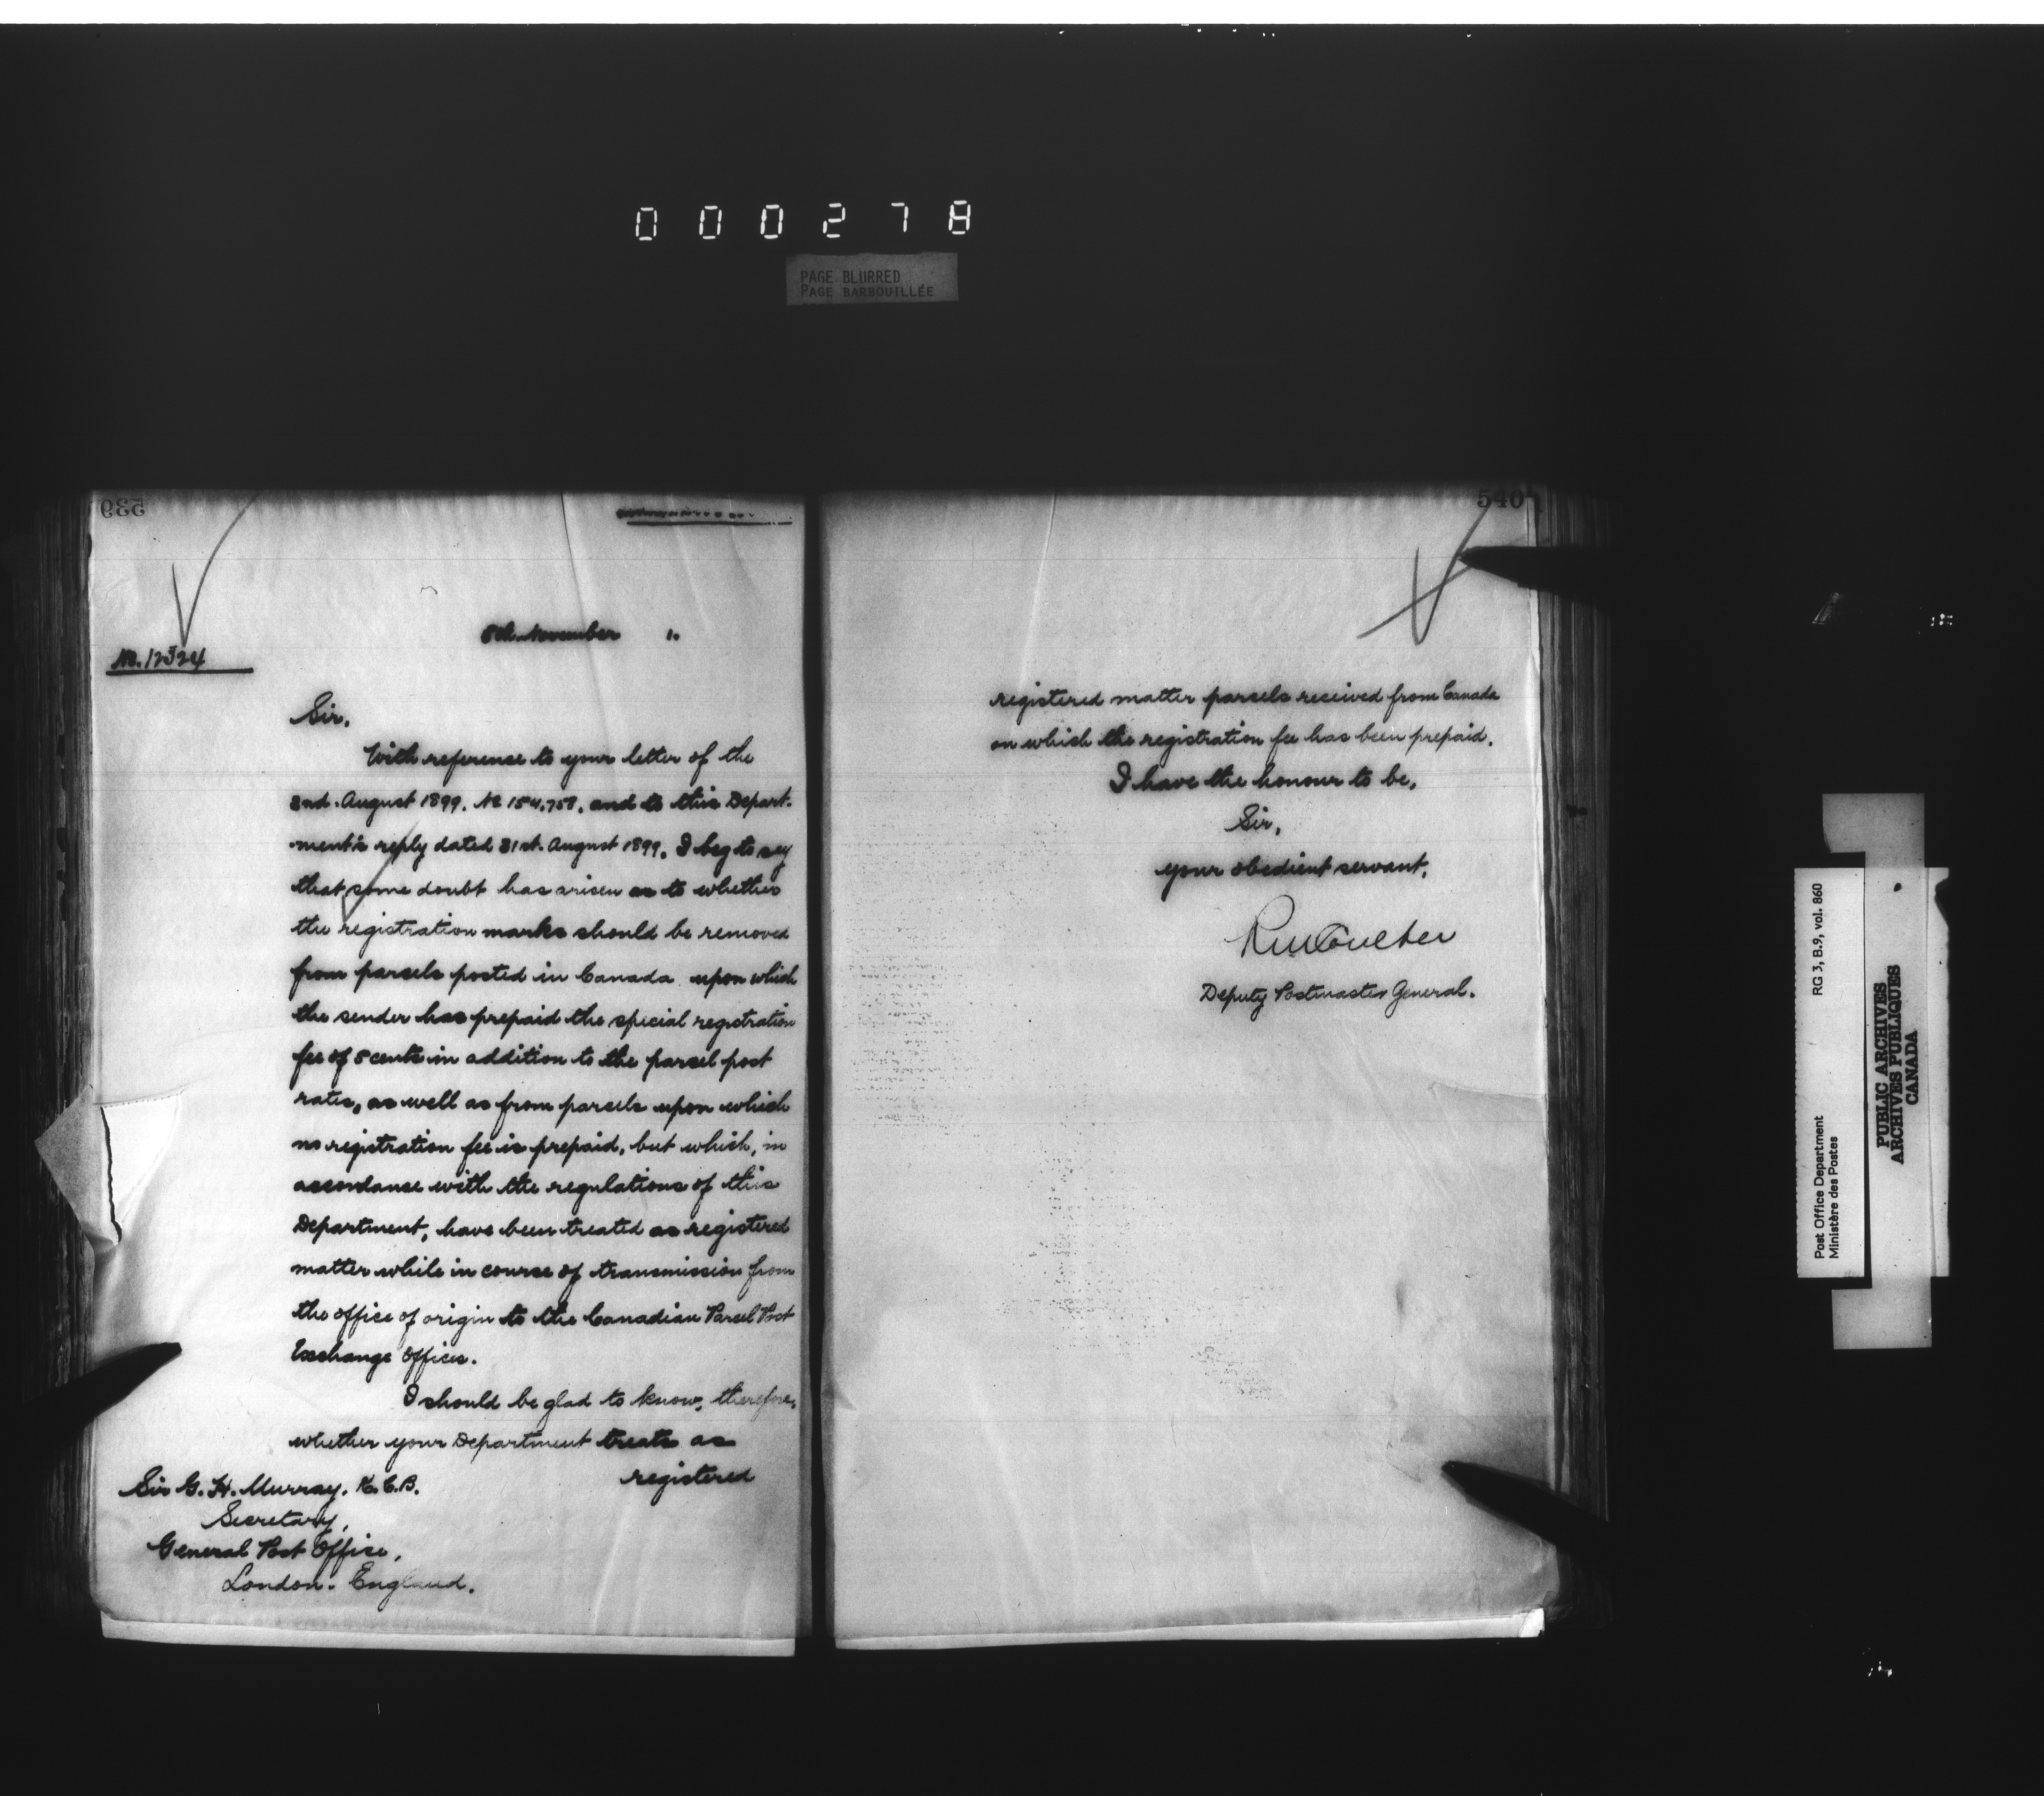 000278
PAGE BLURRED
PAGE BARBOUILLÉE
539
8th November 1.
No. 12324
Sir,
With reference to your letter of the
2nd. August 1899. No 154,758, and to this Depart-
ment's reply dated 31st. August 1899, I beg to say
that some doubt has arisen as to whether
the registration marks should be removed
from parcels posted in Canada upon which
the sender has prepaid the special registration
fee of 5 cents in addition to the parcel post
rates, as well as from parcels upon which
no registration fee is prepaid, but which, in
accordance with the regulations of this
Department, have been treated as registered
matter while in course of transmission from
the office of origin to the Canadian Parcel Post
Exchange Offices.
I should be glad to know, therefore,
whether your Department treats as
registered
Sir G. H. Murray, K.C.B.
Secretary,
General Post Office,
London. England.
540
registered matter parcels received from Canada
on which the registration fee has been prepaid.
I have the honour to be,
Sir,
your obedient servant,
RMCoulter
Deputy Postmaster General.
Post Office Department RG 3, B.9, vol. 860
Ministère des Postes
PUBLIC ARCHIVES
ARCHIVES PUBLIQUES
CANADA